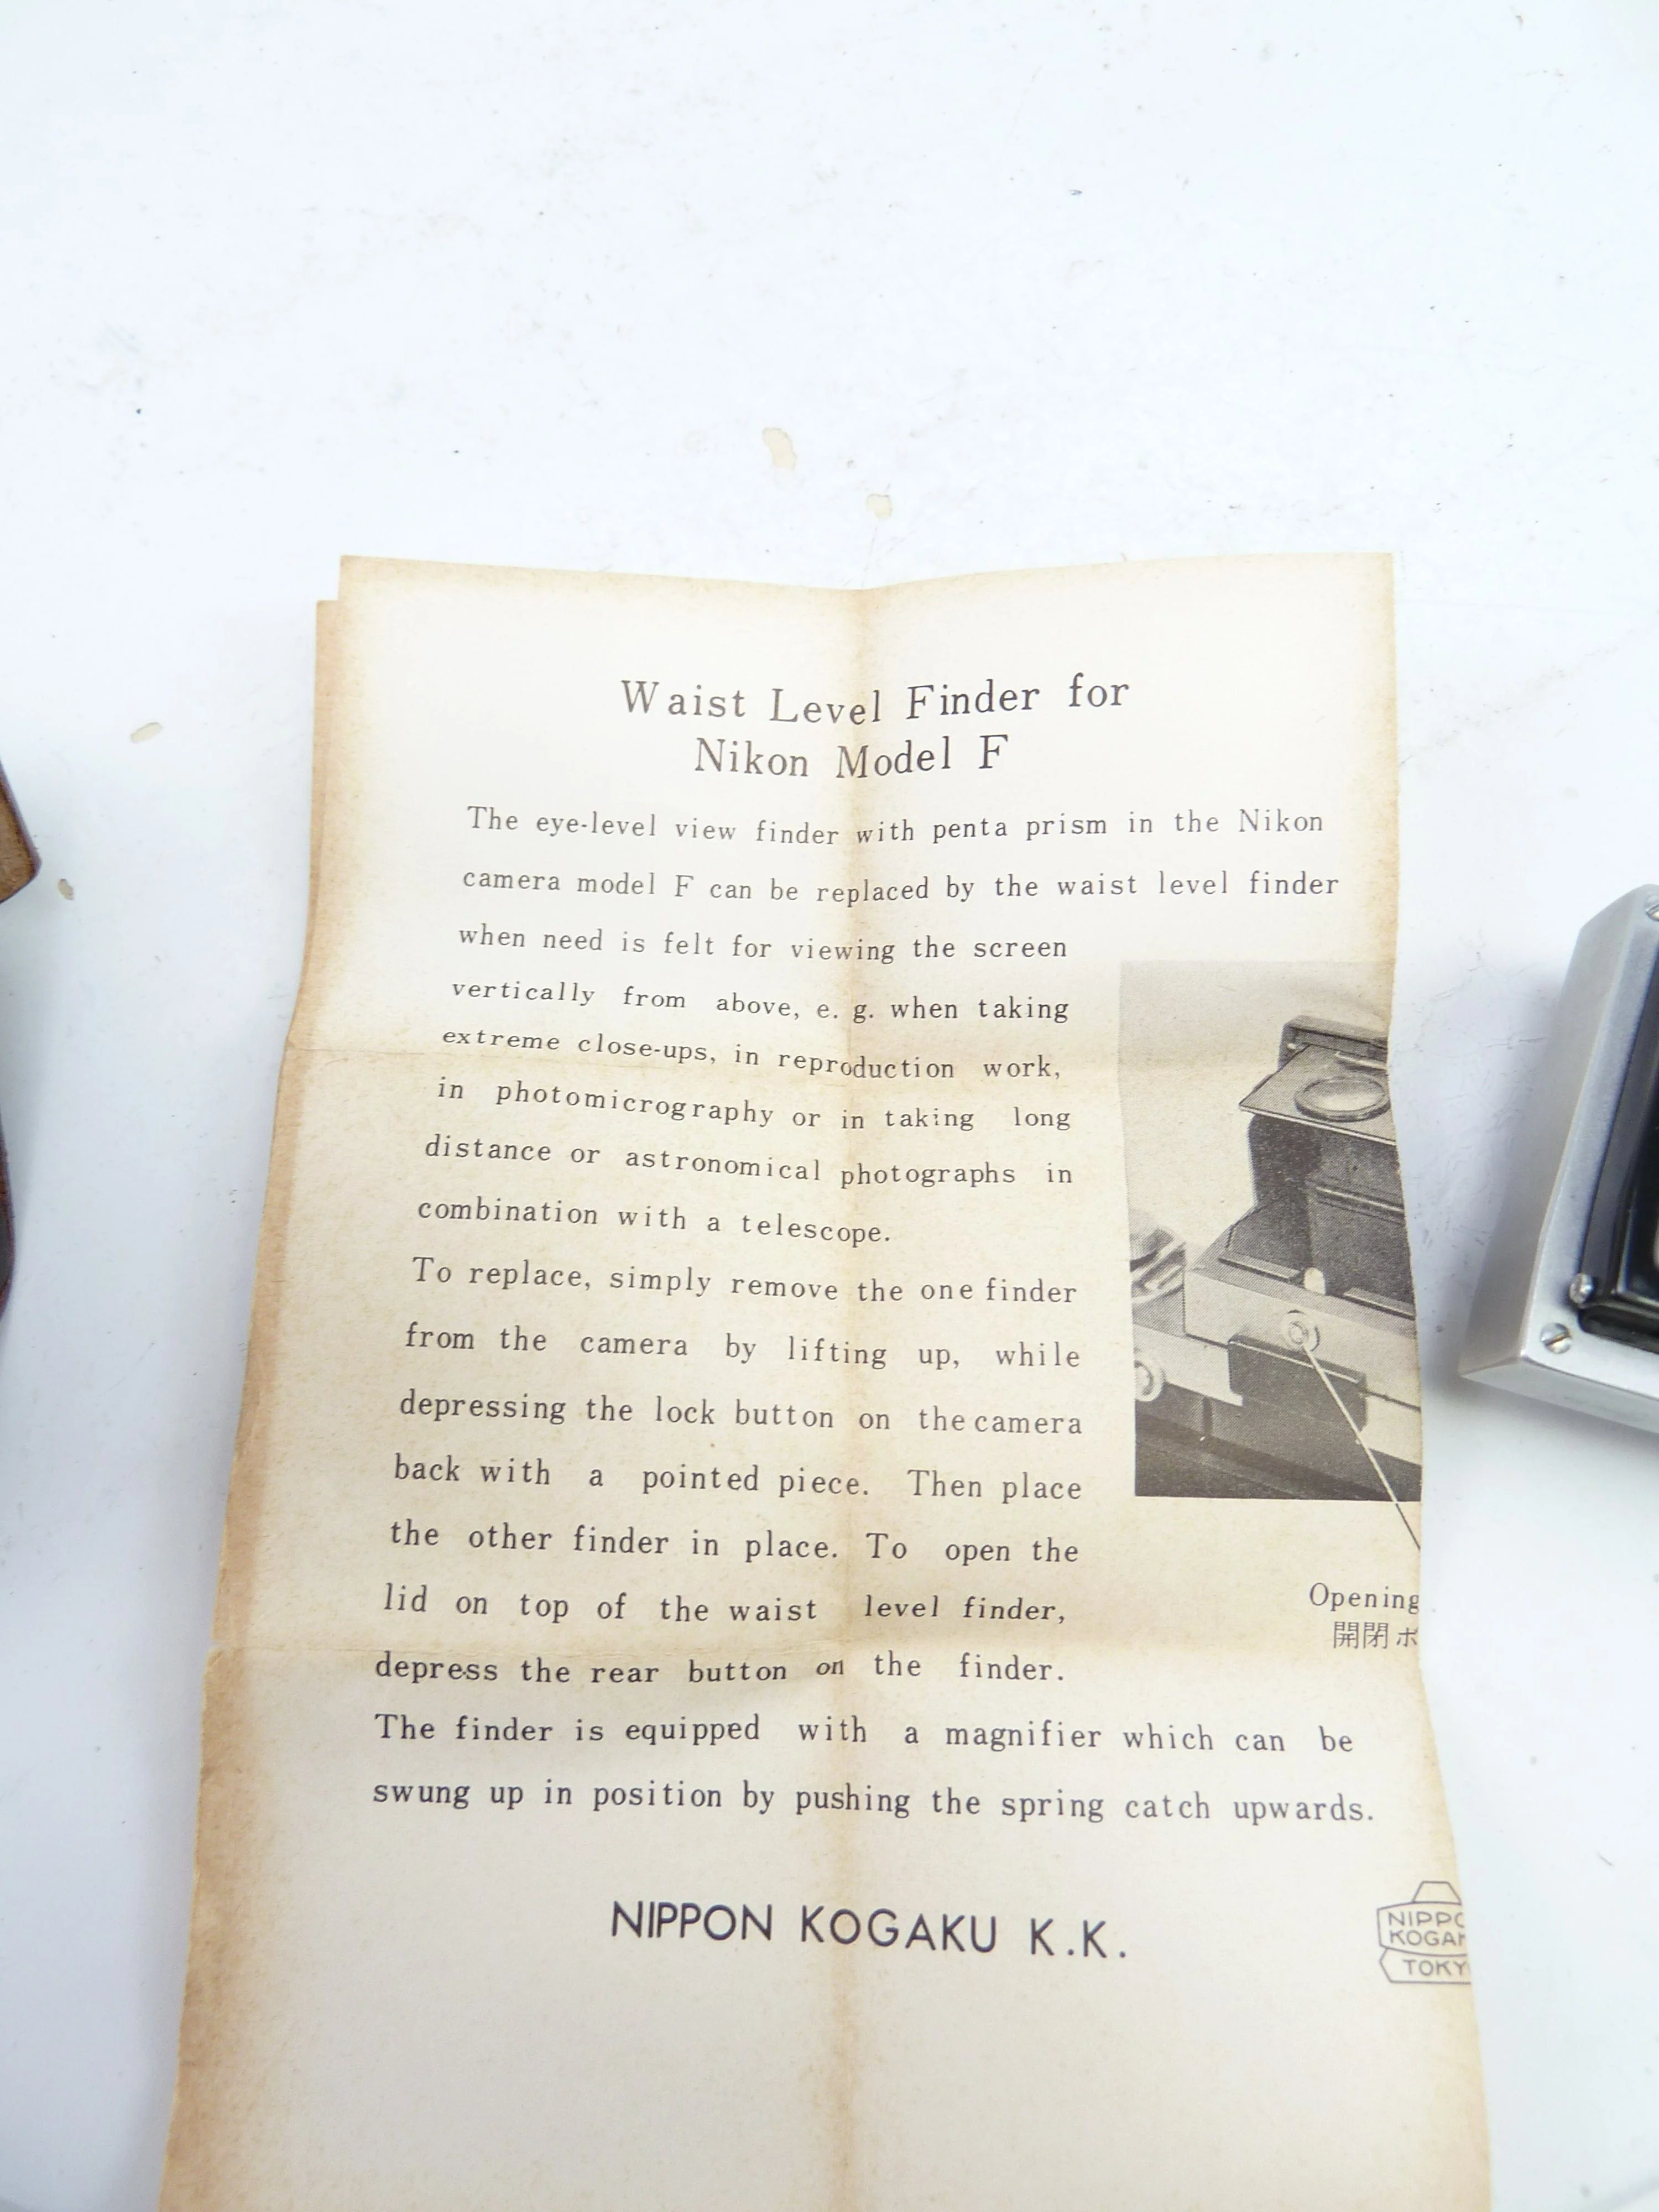 Waist Level Finder for
Nikon Model F
The eye-level view finder with penta prism in the Nikon
camera model F can be replaced by the waist level finder
when need is felt for viewing the screen
vertically from above, e. g. when taking
extreme close-ups, in reproduction work,
in photomicrography or in taking long
distance or astronomical photographs in
combination with a telescope.
To replace, simply remove the one finder
from the camera by lifting up, while
depressing the lock button on the camera
back with a pointed piece. Then place
the other finder in place. To open the
lid on top of the waist level finder,
depress the rear button on the finder.
The finder is equipped with a magnifier which can be
swung up in position by pushing the spring catch upwards.
Opening
開閉ボ
NIPPON KOGAKU K.K.
NIPPO
KOGA
TOKY